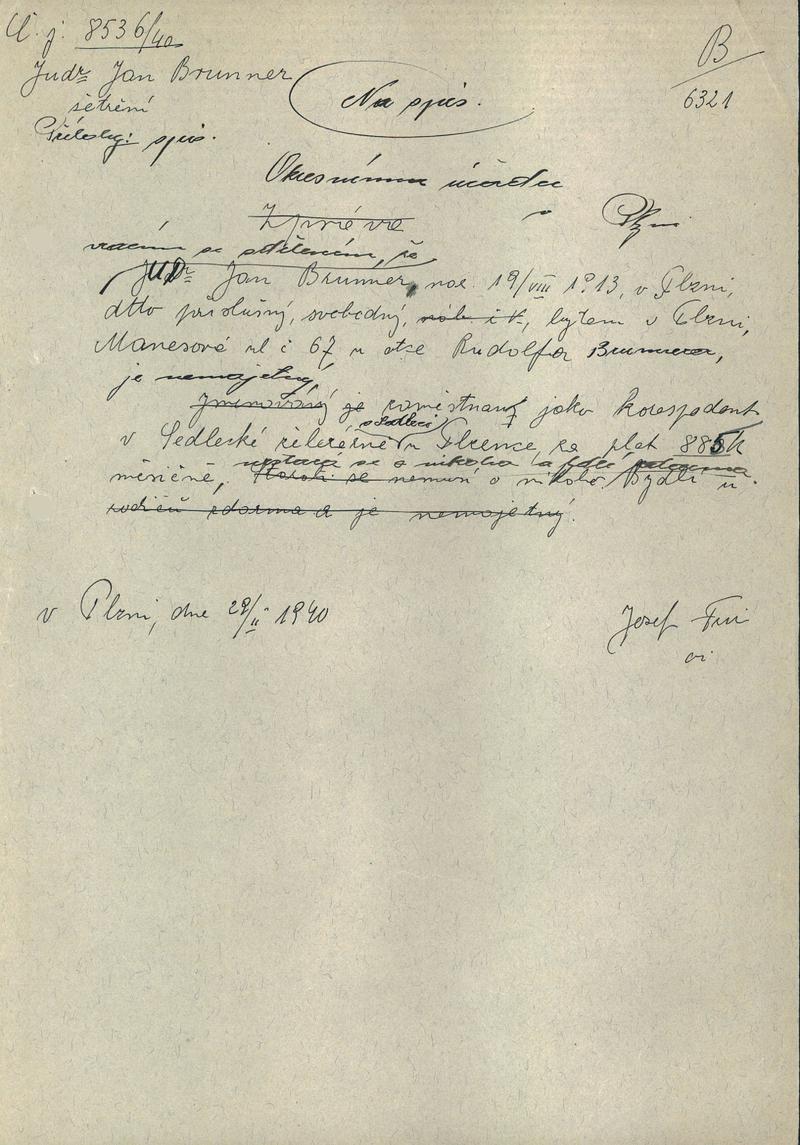 Č. j. 8536/40
B
6321
Judr Jan Brunner
šetření
Přílohy: spis.
Na spis.
Okresnímu úřadu
v Plzni
Zpráva
vracím se sdělením, že
JUDr Jan Brunner, nar. 19/VIII 1913, v Plzni,
dtto příslušný, svobodný, , bytem v Plzni,
Manesová ul č 67 u otce Rudolfa Brunnera,
je nemajetný,
Jmenovaný je zaměstnaný jako korespodent
v Sedlecké železárně v Sedleci u Plzence, za plat 885 K
měsíčně, nestará se o nikoho a
Starati se nemusí o nikoho. Bydlí u
rodičů zdarma a je nemajetný.
v Plzni, dne 29/II 1940
Josef